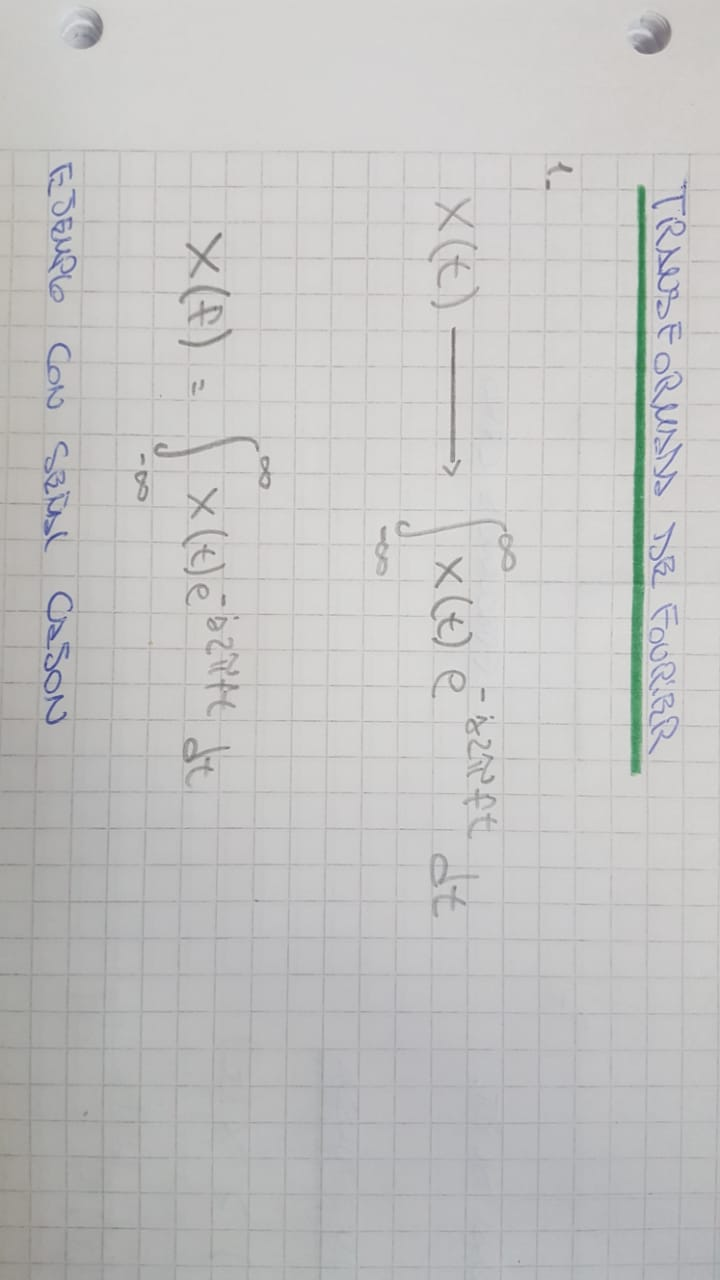 TRANSFORMADA DE FOURIER
1.
X(t) ⟶ ∫_{-∞}^{∞} X(t) e^{-j2πft} dt
X(f) = ∫_{-∞}^{∞} X(t) e^{-j2πft} dt
EJEMPLO CON SEÑAL CAJON